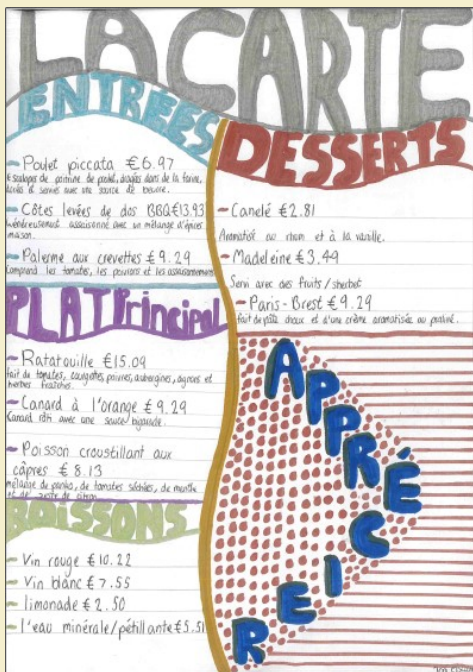 LA CARTE
ENTRÉES
- Poulet piccata €6.97
Escalopes de poitrine de poulet, dragées dans de la farine,
dorées et servies avec une sauce de beurre.
- Côtes levées de dos BBQ €13.93
assaisonné avec un mélange d'épices
maison.
- Palerme aux crevettes €9.29
Comprend les tomates, les poivrons et les assaisonnements
PLAT Principal
- Ratatouille €15.09
fait de tomates, courgettes, poivres, aubergines, oignons et
herbes fraîches.
- Canard à l'orange €9.29
Canard rôti avec une sauce bigarade.
- Poisson croustillant aux
câpres €8.13
mélange de panko, de tomates séchées, de menthe
et de zeste de citron
BOISSONS
- Vin rouge €10.22
- Vin blanc €7.55
- limonade €2.50
- l'eau minérale/pétillante €5.51
DESSERTS
- Canelé €2.81
Aromatisé au rhum et à la vanille.
- Madeleine €3.49
Servi avec des fruits/sherbet
- Paris-Brest €9.29
fait de pâte choux et d'une crème aromatisée au praliné.
APPRÉCIER